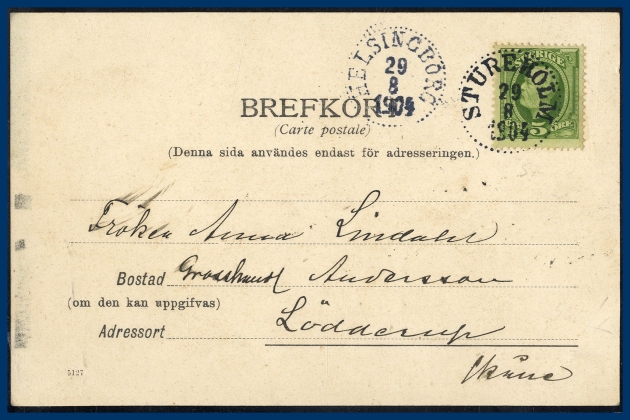 HELSINGBORG
29
8
1904
SVERIGE
5 ÖRE
STUREHOLM
29
8
1904
BREFKORT
(Carte postale)
(Denna sida användes endast för adresseringen.)
Fröken Anna Lindahl
Bostad Grosshandl Andersson
(om den kan uppgifvas)
Adressort Löderup
Skåne
5127